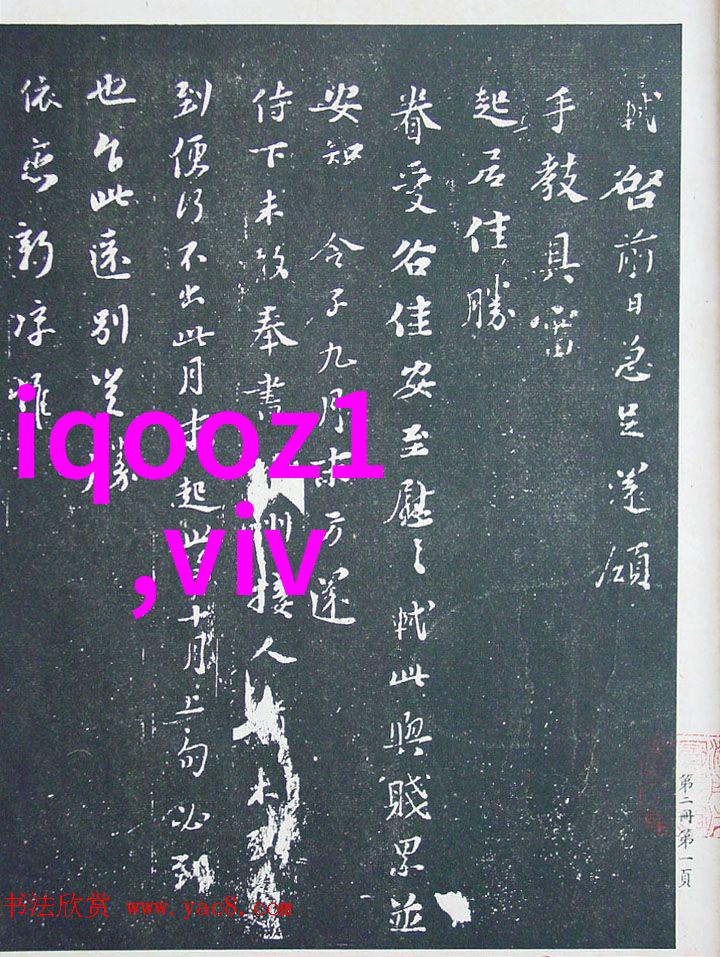 軾啓前日急足還領
手教具審
起居佳勝
眷愛各佳安至慰々軾此與賤累並
安知 令子九月末方還
侍下未敢奉書 州接人猶未到
到便行不出此月末起此 十月上旬必到
也乍此遠別豈勝
依戀新涼惟
iqooz1
,viv
第二冊第一頁
书法欣赏 www.yac8.com